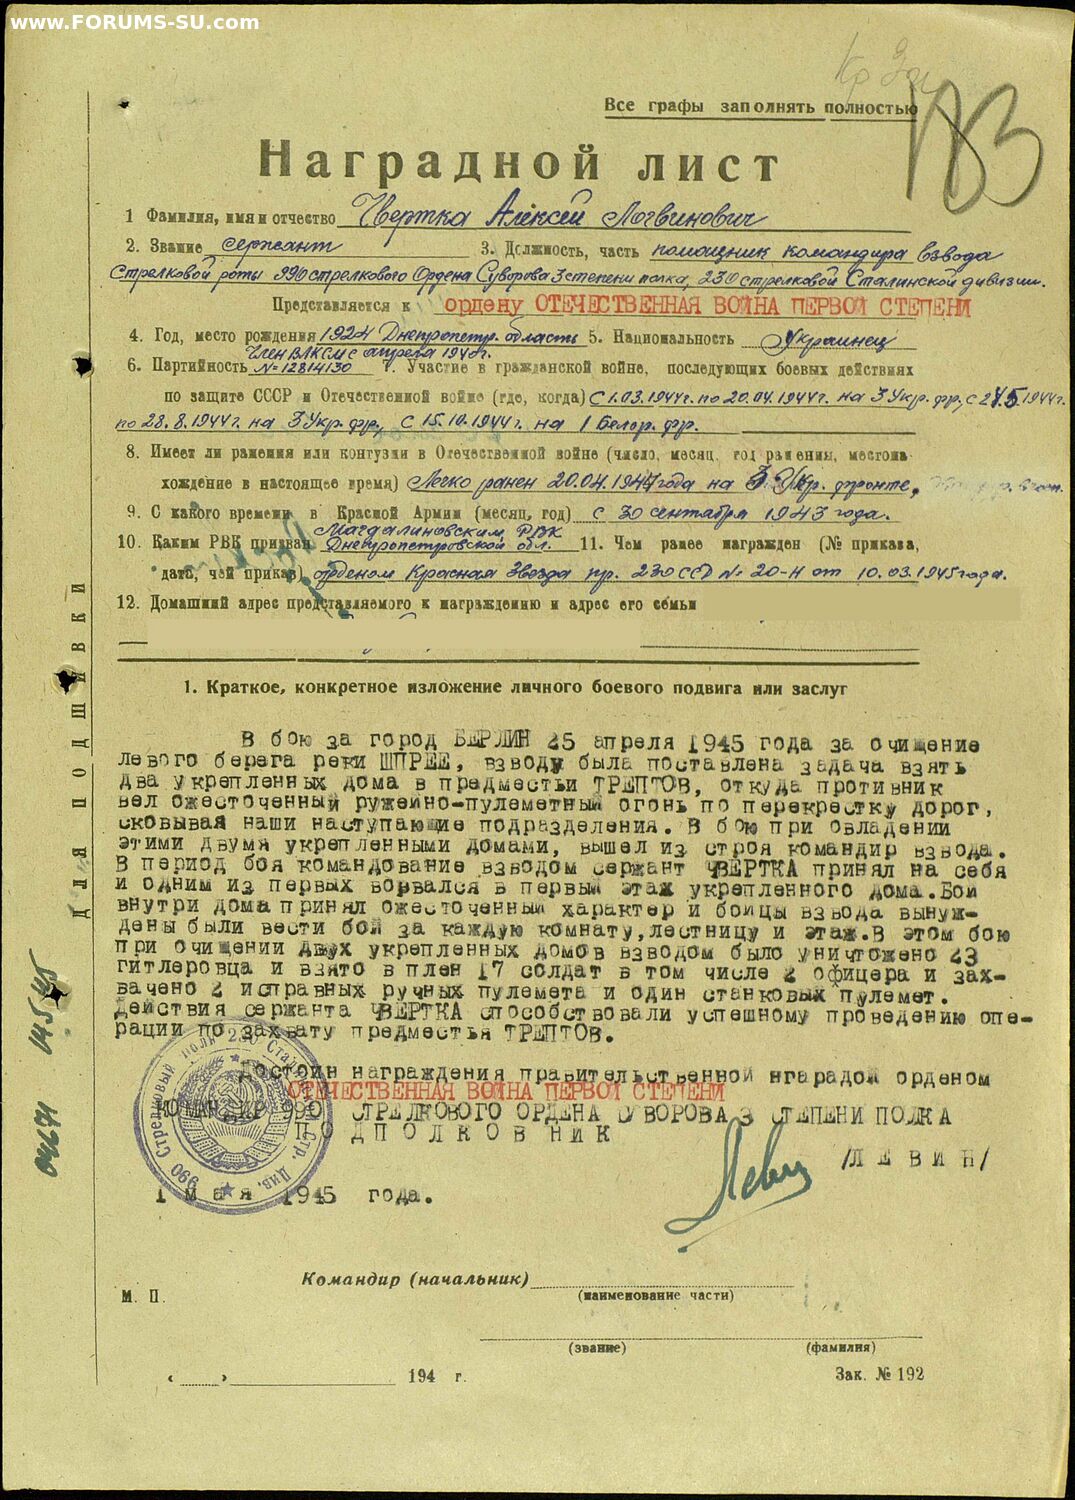 www.FORUMS-SU.com
Все графы заполнять полностью
183
Наградной лист
1 Фамилия, имя и отчество Чвертка Алексей Логвинович
2. Звание сержант 3. Должность, часть помощник командира взвода
Стрелковой роты 990 стрелкового Ордена Суворова 3 степени полка, 230 стрелковой Сталинской дивизии.
Представляется к ордену ОТЕЧЕСТВЕННАЯ ВОЙНА ПЕРВОЙ СТЕПЕНИ
4. Год, место рождения 1924 Днепропетр. область 5. Национальность Украинец
Член ВЛКСМ с апреля
6. Партийность №=12814130 7. Участие в гражданской войне, последующих боевых действиях
по защите СССР и Отечественной войне (где, когда) С 1.03.1944г. по 20.04.1944г. на 3 Укр. фр., с 1944г.
по 28.8.1944г. на 3 Укр. фр., с 15.10.1944г. на 1 Белор. фр.
8. Имеет ли ранения или контузии в Отечественной войне (число, месяц, год ранения, местона
хождение в настоящее время) Легко ранен 20.04.1944 года на 3 Укр. фронте,
9. С какого времени в Красной Армии (месяц, год) с 30 сентября 1943 года.
Магдалиновским РВК
10. Каким РВК призван Днепропетровской обл. 11. Чем ранее награжден (№ приказа,
дата, чей приказ) орденом Красная Звезда пр. 230 ССД № 20-Н от 10.03.1945 года.
12. Домашний адрес представляемого к награждению и адрес его семьи
1. Краткое, конкретное изложение личного боевого подвига или заслуг
В бою за город БЕРЛИН 25 апреля 1945 года за очищение
левого берега реки ШПРЕЕ, взводу была поставлена задача взять
два укрепленных дома в предместьи ТРЕПТОВ, откуда противник
вел ожесточенный ружейно-пулеметный огонь по перекрестку дорог,
сковывая наши наступающие подразделения. В бою при овладении
этими двумя укрепленными домами, вышел из строя командир взвода.
В период боя командование взводом сержант ЧВЕРТКА принял на себя
и одним из первых ворвался в первый этаж укрепленного дома. Бой
внутри дома принял ожесточенный характер и бойцы взвода вынуж-
дены были вести бой за каждую комнату, лестницу и этаж. В этом бою
при очищении двух укрепленных домов взводом было уничтожено 23
гитлеровца и взято в плен 17 солдат в том числе 2 офицера и зах-
вачено 2 исправных ручных пулемета и один станковых пулемет.
Действия сержанта ЧВЕРТКА способствовали успешному проведению опе-
рации по захвату предместья ТРЕПТОВ.
Достоин награждения правительственной нгарадой орденом
ОТЕЧЕСТВЕННАЯ ВОЙНА ПЕРВОЙ СТЕПЕНИ
КОМАНДИР 990 СТРЕЛКОВОГО ОРДЕНА СУВОРОВА 3 СТЕПЕНИ ПОЛКА
ПОДПОЛКОВНИК
/ЛЕВИН/
Левин
1 мая 1945 года.
990 Стрелковый полк 230 Стр. Див.
Командир (начальник)
(наименование части)
М. П.
(звание) (фамилия)
« » 194 г.
Зак. № 192
Для подшивки
04671 14545